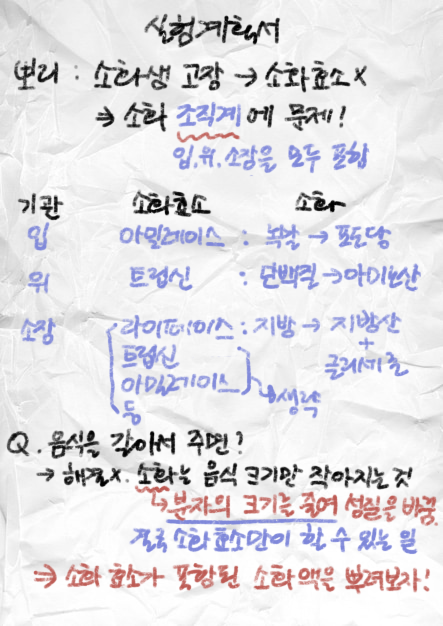 실험계획서
뽀리 : 소화샘 고장 → 소화효소 X
⇒ 소화 조직계에 문제!
입.위.소장을 모두 포함
기관 소화효소 소화
입 아밀레이스 : 녹말 → 포도당
위 트립신 : 단백질 → 아미노산
소장 라이페이스 : 지방 → 지방산
+
트립신 글리세롤
아밀레이스
등 → 생략
Q. 음식을 갈아서 주면?
→ 해결X. 소화는 음식 크기만 작아지는 것
↳ 분자의 크기는 줄여 성질을 바꿈.
결국 소화효소만이 할 수 있는 일
⇒ 소화 효소가 포함된 소화액을 뿌려보자!